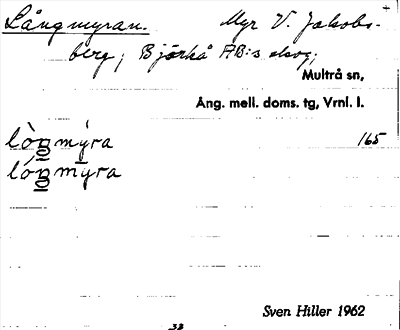 Långmyran. Myr V. Jakobs-
berg; Björkå AB:s skog;
Multrå sn,
Ång. mell. doms. tg, Vrnl. l.
lòŋmýra 165
lóŋmyra
Sven Hiller 1962
33